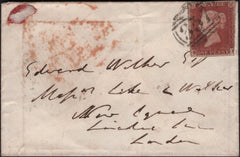 Edward Walker Esq
Messrs Lake & Walker
New Square
Lincolns Inn
London